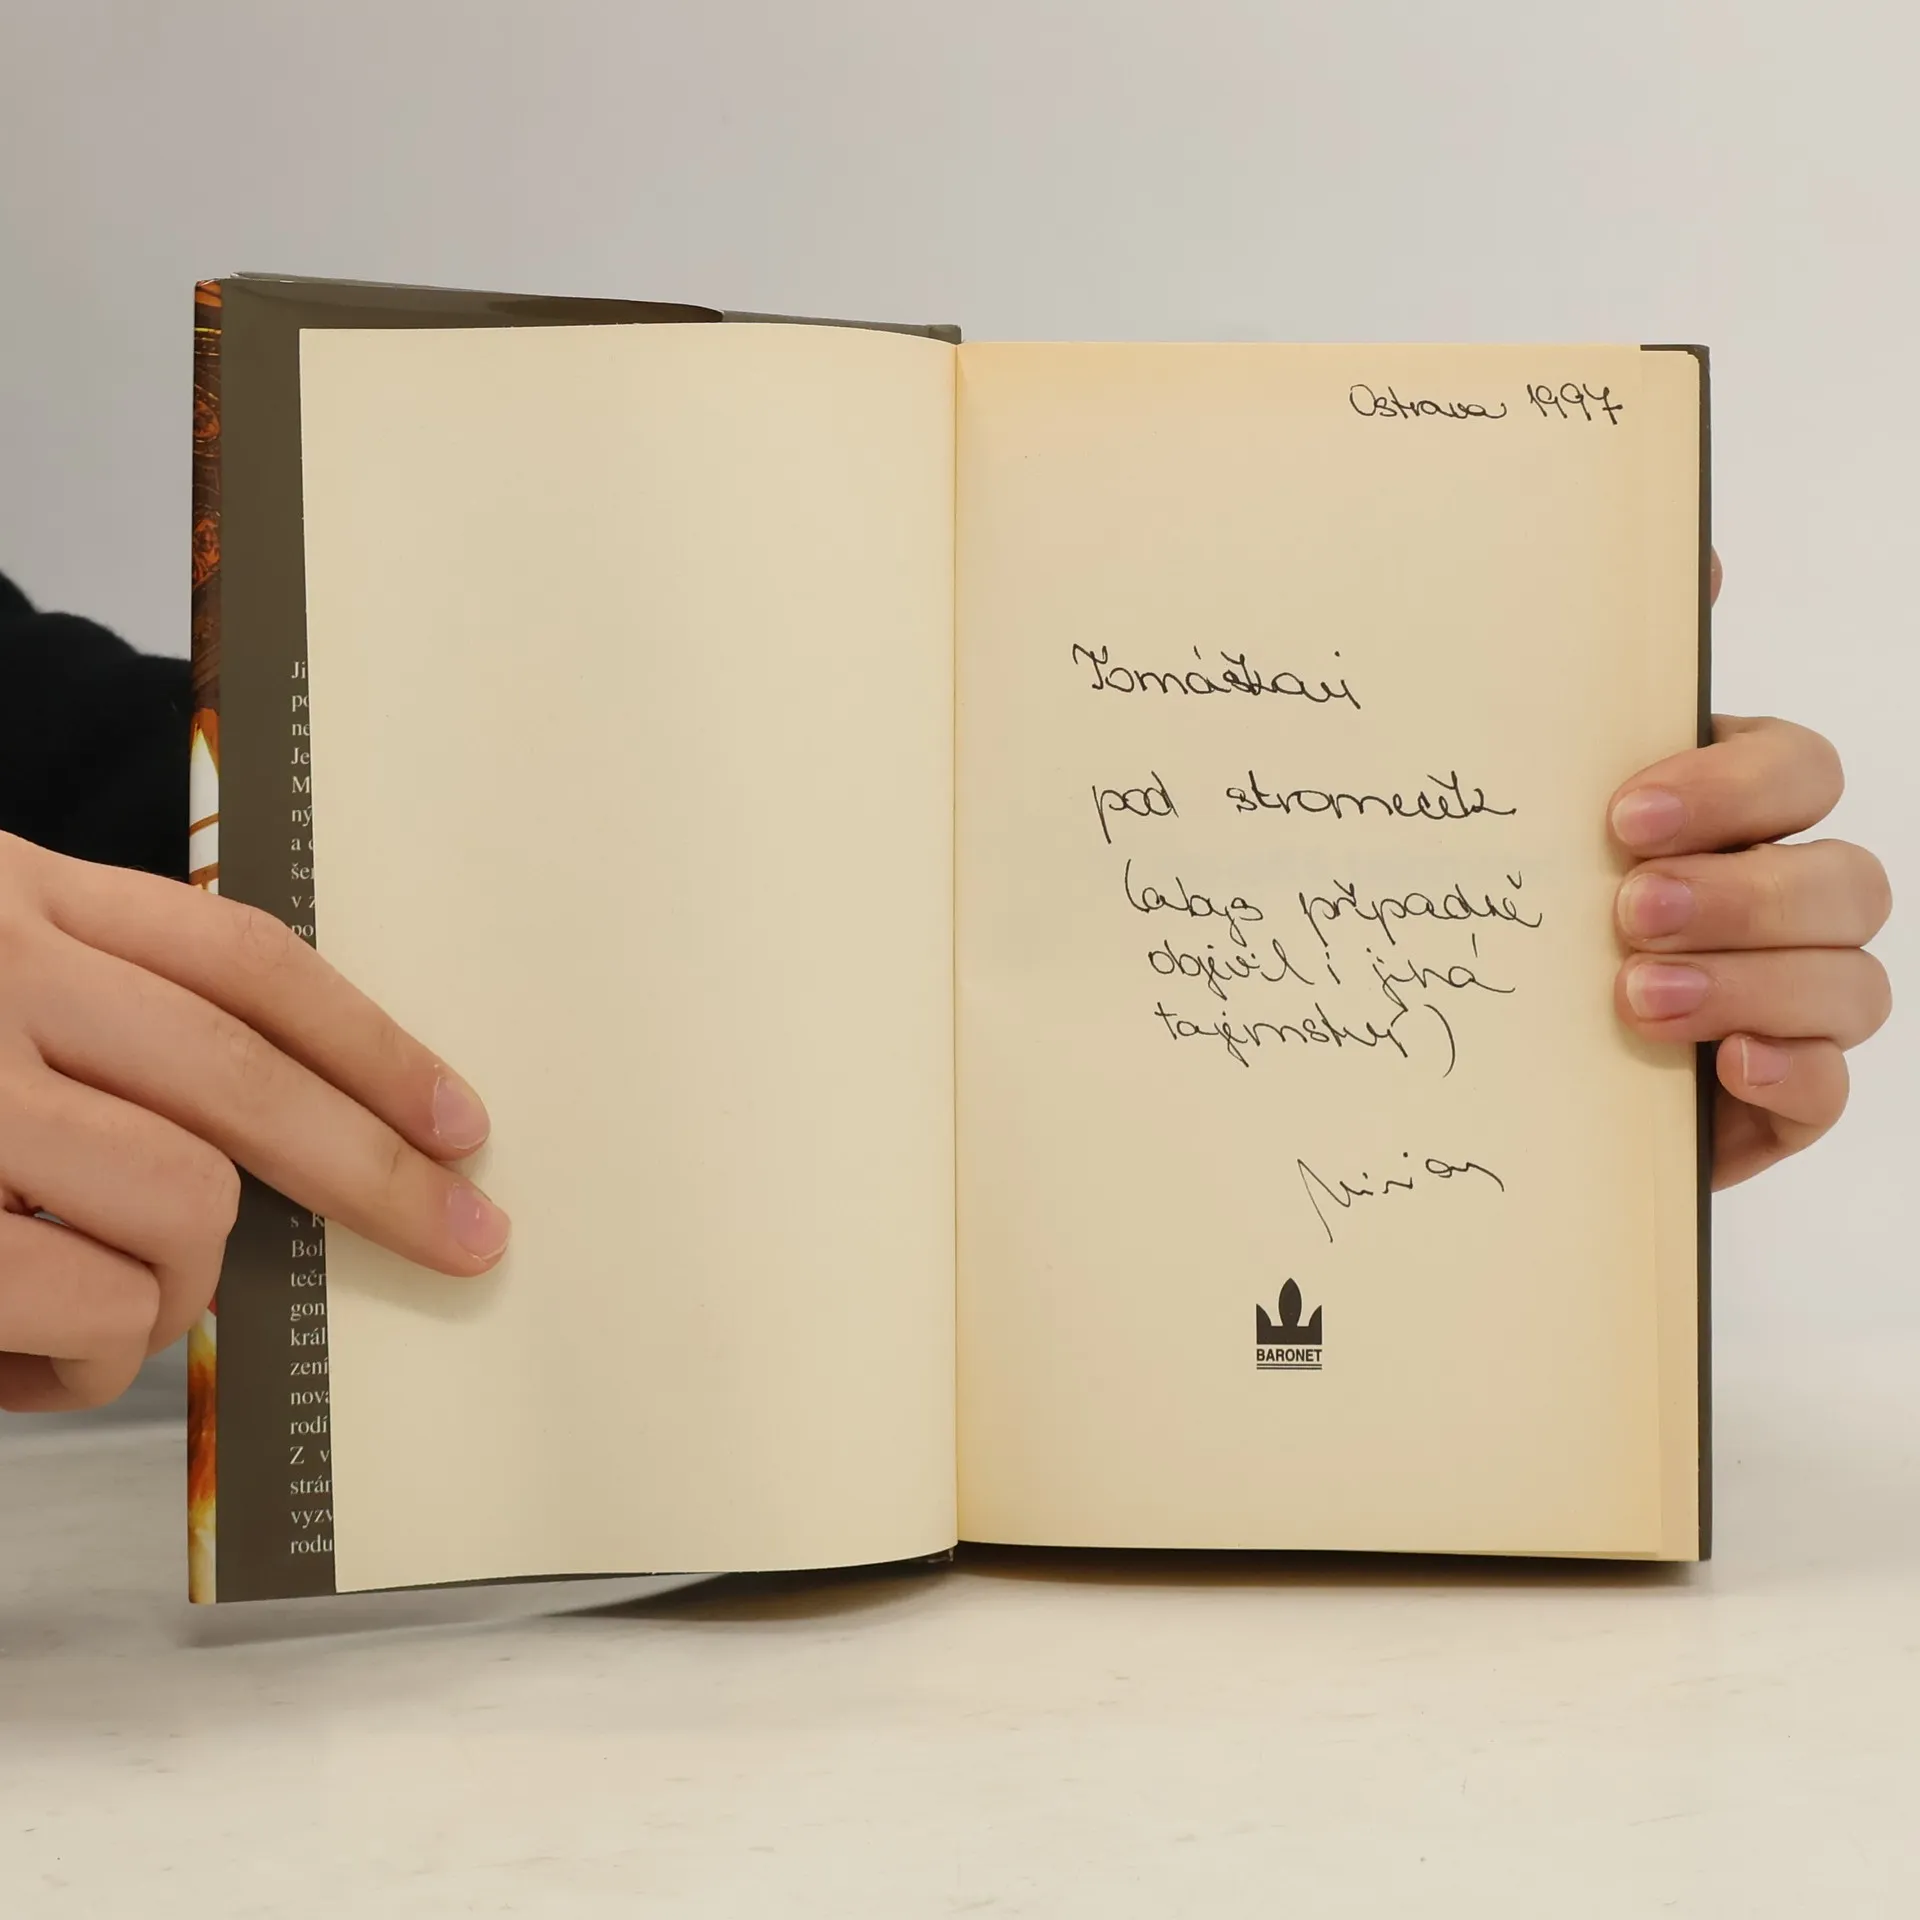 Ji
po
ne
Je
M
ný
a
še
v z
po
s K
Bol
tečn
gon
král
zení
nova
rodí
Z v
strán
vyzv
rodu
Ostrava 1997
Tomáškovi
pod stromeček
(abys případně
objevil i jiná
tajemství)
Mirian
BARONET